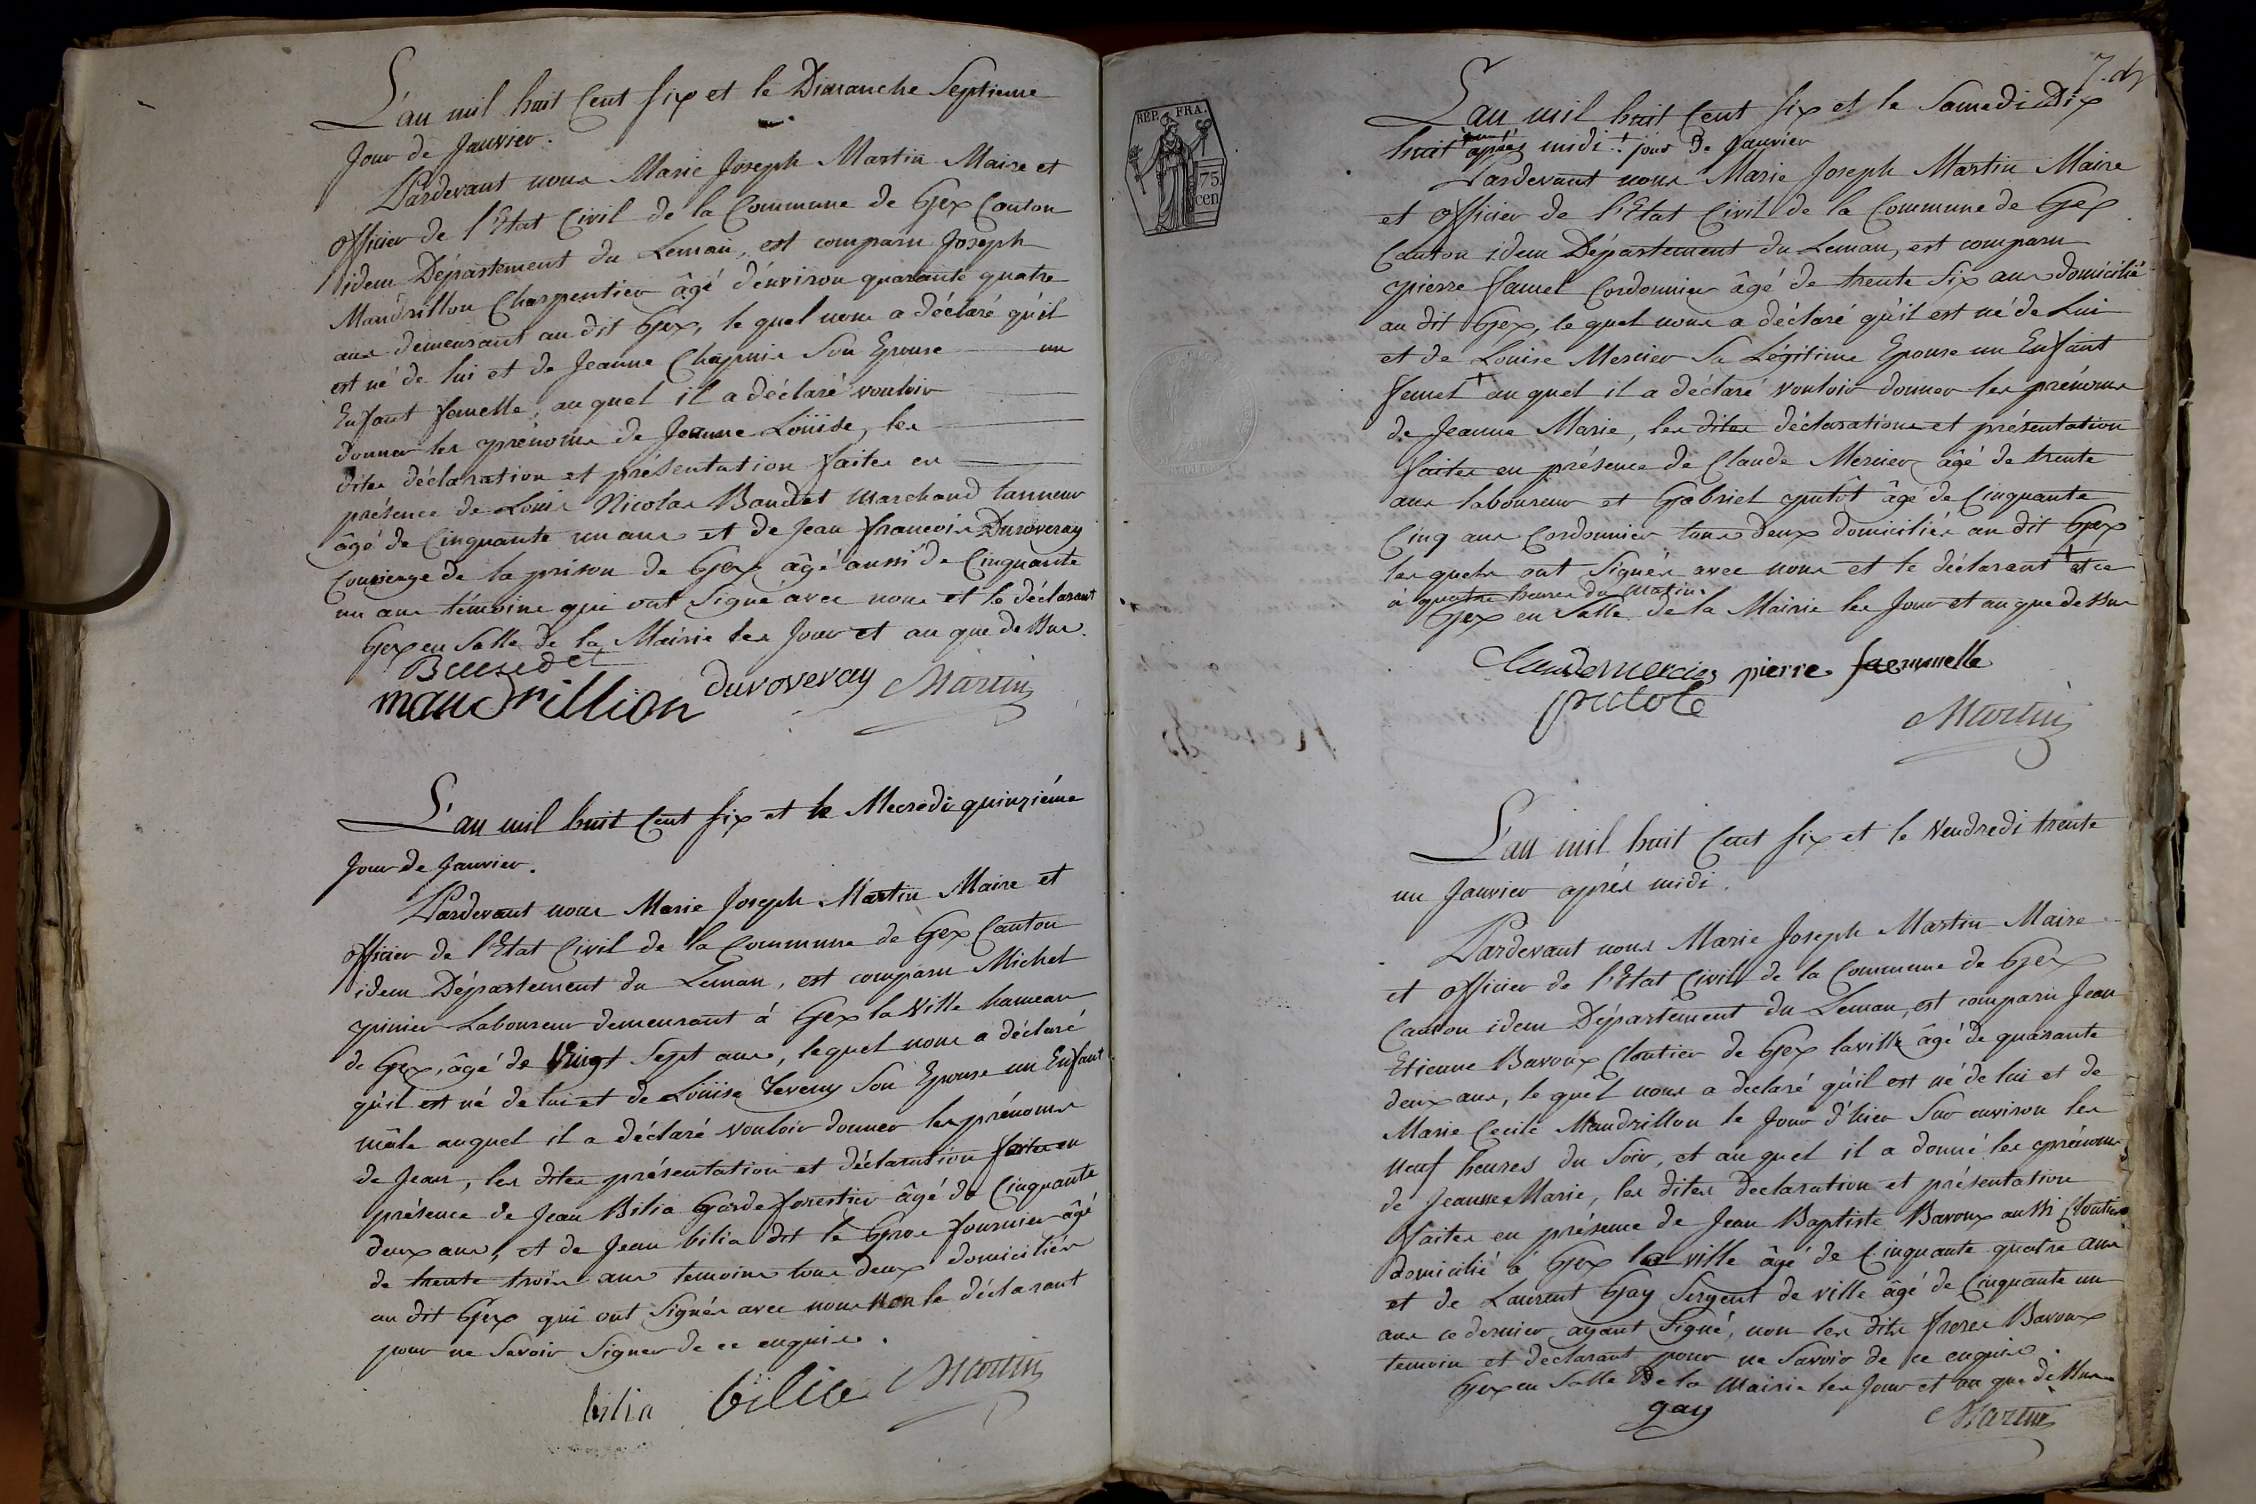 L'an mil huit Cent six et le Dimanche Septieme
Jour de Janvier.
Pardevant nous Marie Joseph Martin Maire et
officier de l'Etat Civil de la Commune de Gex Canton
idem Département du Leman, est comparu Joseph
Mandrillon Charpentier âgé d'environ quarante quatre
ans demeurant au dit Gex, le quel nous a déclaré qu'il
est né de lui et de Jeanne Chapuis Son Epouse un
Enfant femelle, au quel il a déclaré vouloir
donner les prénoms de Jeanne Loüise, les
dites déclaration et présentation faites en
présence de Louis Nicolas Baudet Marchand tanneur
âgé de Cinquante un ans et de Jean françois Duroveray
Concierge de la prison de Gex âgé aussi de Cinquante
un ans témoins qui ont Signé avec nous et le déclarant
Gex en Salle de la Mairie les Jour et an que dessus.
Baudet
mandrillion duroveray Martin
L'an mil huit Cent six et le Mecredi quinziéme
Jour de Janvier.
Pardevant nous Marie Joseph Martin Maire et
officier de l'Etat Civil de la Commune de Gex Canton
idem Département du Leman, est comparu Michel
pinier Laboureur demeurant á Gex la Ville hameau
de Gex, âgé de Vingt Sept ans, lequel nous a déclaré
qu'il est né de lui et de Loüise Son Epouse un Enfant
mâle auquel il a déclaré vouloir donner les prénoms
de Jean, les dites présentation et déclaration faites en
présence de Jean Bilia Garde forestier âgé de Cinquante
deux ans, et de Jean bilia dit le Gros fournier âgé
de trente trois ans temoins tous deux domiciliés
au dit Gex qui ont Signés avec nous non le déclarant
pour ne Savoir Signer de ce enquis.
bilia bilia Martin
7.
REP. FRA.
75
cen
L'an mil huit Cent six et le Samedi Dix
huit après midi jour de Janvier
Pardevant nous Marie Joseph Martin Maire
et officier de l'Etat Civil de la Commune de Gex
Canton idem Département du Leman, est comparu
pierre famel Cordonnier âgé de trente Six ans domicilié
au dit Gex, le quel nous a déclaré qu'il est né de Lui
et de Loüise Mercier Sa Légitime Epouse un Enfant
femel auquel il a déclaré vouloir donner les prénoms
de Jeanne Marie, les dites déclarations et présentation
faites en présence de Claude Mercier âgé de trente
ans laboureur et Gabriel putôt âgé de Cinquante
Cinq ans Cordonnier tous deux domiciliés au dit Gex
les quels ont Signés avec nous et le déclarant et ce
à quatre heures du matin
Gex en Salle de la Mairie les Jour et an que dessus
Claude mercier pierre faemmelle
putote
Martin
L'an mil huit Cent six et le Vendredi trente
un Janvier après midi.
Pardevant nous Marie Joseph Martin Maire
et officier de l'Etat Civil de la Commune de Gex
Canton idem Département du Leman, est comparu Jean
Etienne Bavoux Cloutier de Gex laville âgé de quarante
deux ans, le quel nous a declaré qu'il est né de lui et de
Marie Cecile Mandrillon le Jour d'hier Sur environ les
neuf heures du Soir, et au quel il a donné les prénoms
de Jeanne Marie, les dites declaration et présentation
faites en présence de Jean Baptiste Bavoux aussi Cloutier
domicilié á Gex la ville âgé de Cinquante quatre ans
et de Laurent Gay Sergent de ville âgé de Cinquante un
ans ce dernier ayant Signé, non les dits freres Bavoux
temoin et declarant pour ne Savoir de ce enquis.
Gex en Salle de la Mairie les Jour et an que dessus
gay
Martin